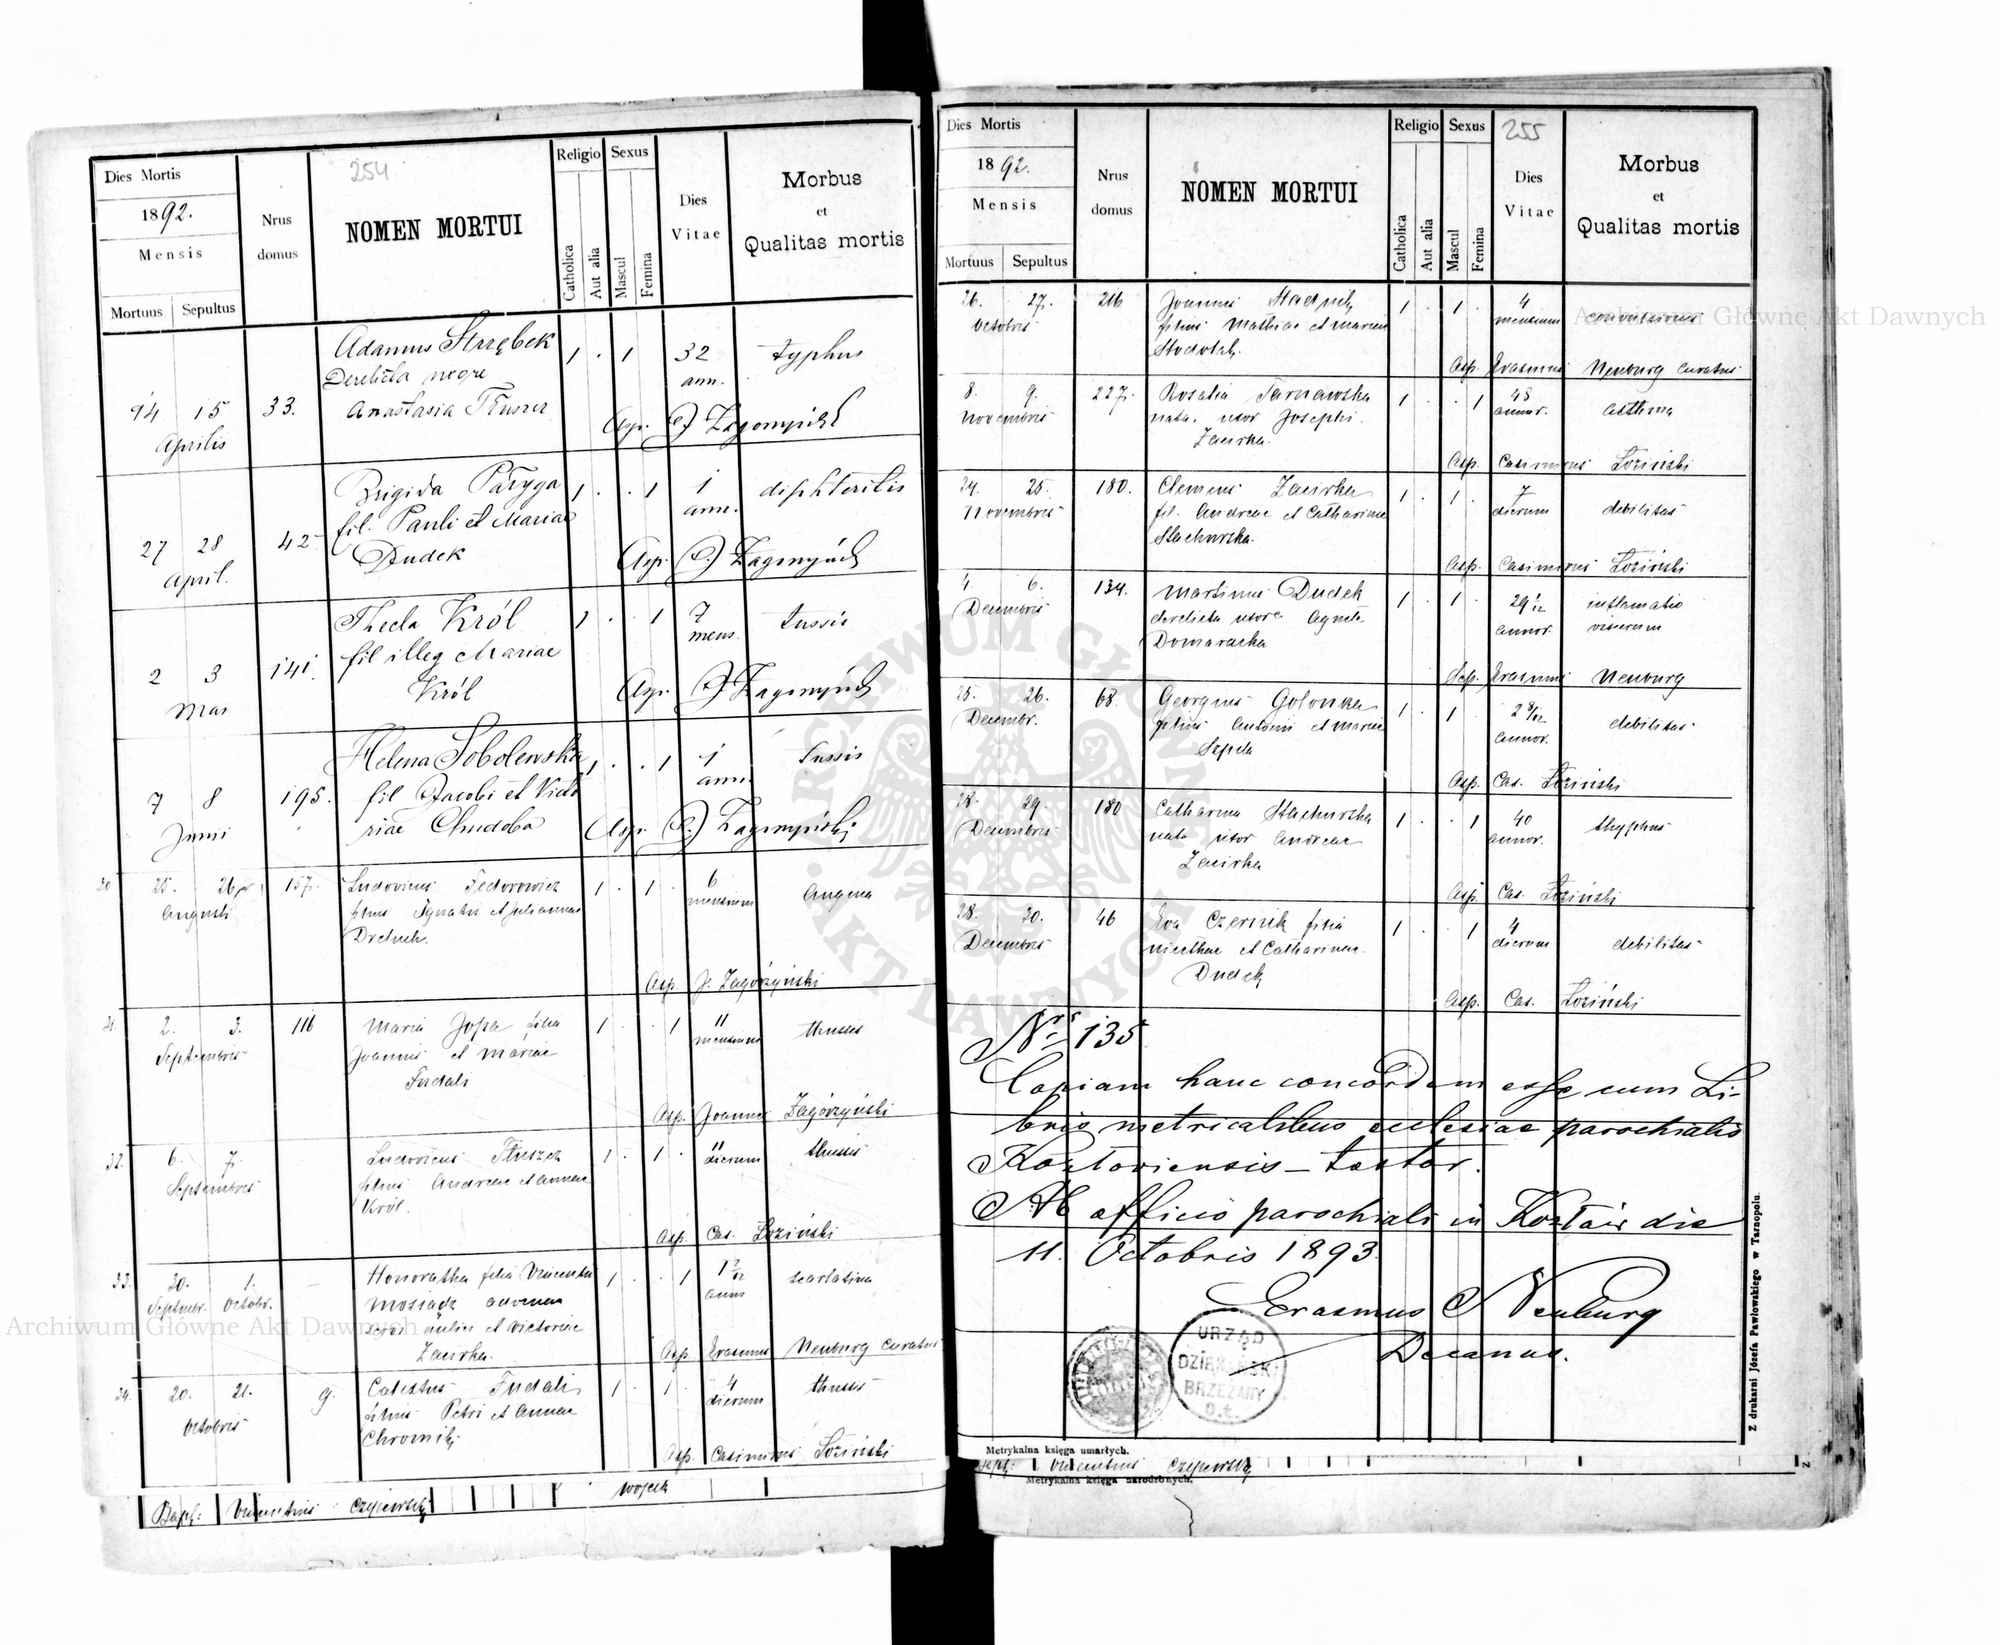 254
Dies Mortis
1892.
Mensis
Mortuus Sepultus
Nrus domus
NOMEN MORTUI
Religio
Catholica
Aut alia
Sexus
Mascul
Femina
Dies Vitae
Morbus
et
Qualitas mortis
Adamus Strzębek 1 . 1 32 typhus
Derelicta uxore ann.
14 15 33. Anastasia Tłuszcz Asp.
Aprilis
Brigida Paryga 1 . . 1 1 diphteritis
fil. Pauli et Mariae ann.
27 28 42 Dudek Asp.
April.
Thecla Król 1 . . 1 7 tussis
fil illeg Mariae mens.
2 3 141. Król Asp.
Mai
Helena Sobolewska 1 . . 1 1 tussis
fil Jacobi et Victo ann.
7 8 195. riae Chudoba Asp.
Junii
30 25. 26. 157. Ludovicus Fedorowicz 1 . 1 . 6 Angina
Augusti filius Ignatii et Juliannae mensium
Asp. J. Zagórzyński
31. 2. 3. 116 Maria Jopa filia 1 . . 1 11 thussis
Septembris Joannis et Mariae mensium
Fudali
Asp. Joannes Zagórzyński
32. 6. 7. Ludovicus Tłuszcz 1 . 1 . 11 thussis
Septembris filius Andreae et Annae dierum
Król.
Asp. Cas. Łoziński
33. 30. 1. — Honoratha filia Vincentii 1 . . 1 1 2/12 scarlatina
Septembr. Octobr. Mosiądz
et Victoriae
Zacirka. Asp. Erasmus Neuburg curatus
34. 20. 21. 9. Calixtus Fudali 1 . 1 . 4 thussis
Octobris filius Petri et Annae dierum
Chromik
Asp. Casimirus Łoziński
Wojcik
Bapt: Vincentius
255
Dies Mortis
1892.
Mensis
Mortuus Sepultus
Nrus domus
NOMEN MORTUI
Religio
Catholica
Aut alia
Sexus
Mascul
Femina
Dies Vitae
Morbus
et
Qualitas mortis
26. 27. 216 Joannes Stadnik 1 . 1 . 4 convulsiones
Octobris filius Mathiae et Mariae mensium
Asp. Erasmus Neuburg curatus
8. 9. 227. Rosalia Tarnawska 1 . . 1 48 asthma
Novembris nata, uxor Josephi annor.
Zacirka.
Asp. Casimirus Łoziński
24. 25. 180. Clemens Zacirka 1 . 1 . 7 debilitas
Novembris fil. Andreae et Catharinae dierum
Stachurska.
Asp. Casimirus Łoziński
4 6. 134. Martinus Dudek 1 . 1 . 29 1/12 inflamatio
Decembris derelicta uxore Agnete annor. viscerum
Domaracka
Asp. Erasmus Neuburg
25. 26. 68 Georgius Golonka 1 . 1 . 2 8/12 debilitas
Decembr. filius Antonii et Mariae annor.
Asp. Cas. Łoziński
28. 29. 180 Catharina Stachurska 1 . . 1 40 thyphus
Decembris nata uxor Andreae annor.
Zacirka
Asp. Cas. Łoziński
28. 46 Eva Czernik filia 1 . . 1 4 debilitas
Decembris et Catharinae dierum
Dudek
Asp. Cas. Łoziński
Nrs 135
Copiam hanc concordem esse cum Li-
bris metricalibus ecclesiae parochialis
Kozłoviensis – testor.
Ab officio parochiali in Kozłów die
11. Octobris 1893.
Erasmus Neuburg
Decanus.
URZĄD
DZIEKAŃSKI
BRZEŻANY
O. ł.
Z drukarni Józefa Pawłowskiego w Tarnopolu.
Metrykalna księga umarłych.
Vincentius
Metrykalna księga narodzonych.
Archiwum Główne Akt Dawnych
Archiwum Główne Akt Dawnych
ARCHIWUM GŁÓWNE
AKT DAWNYCH